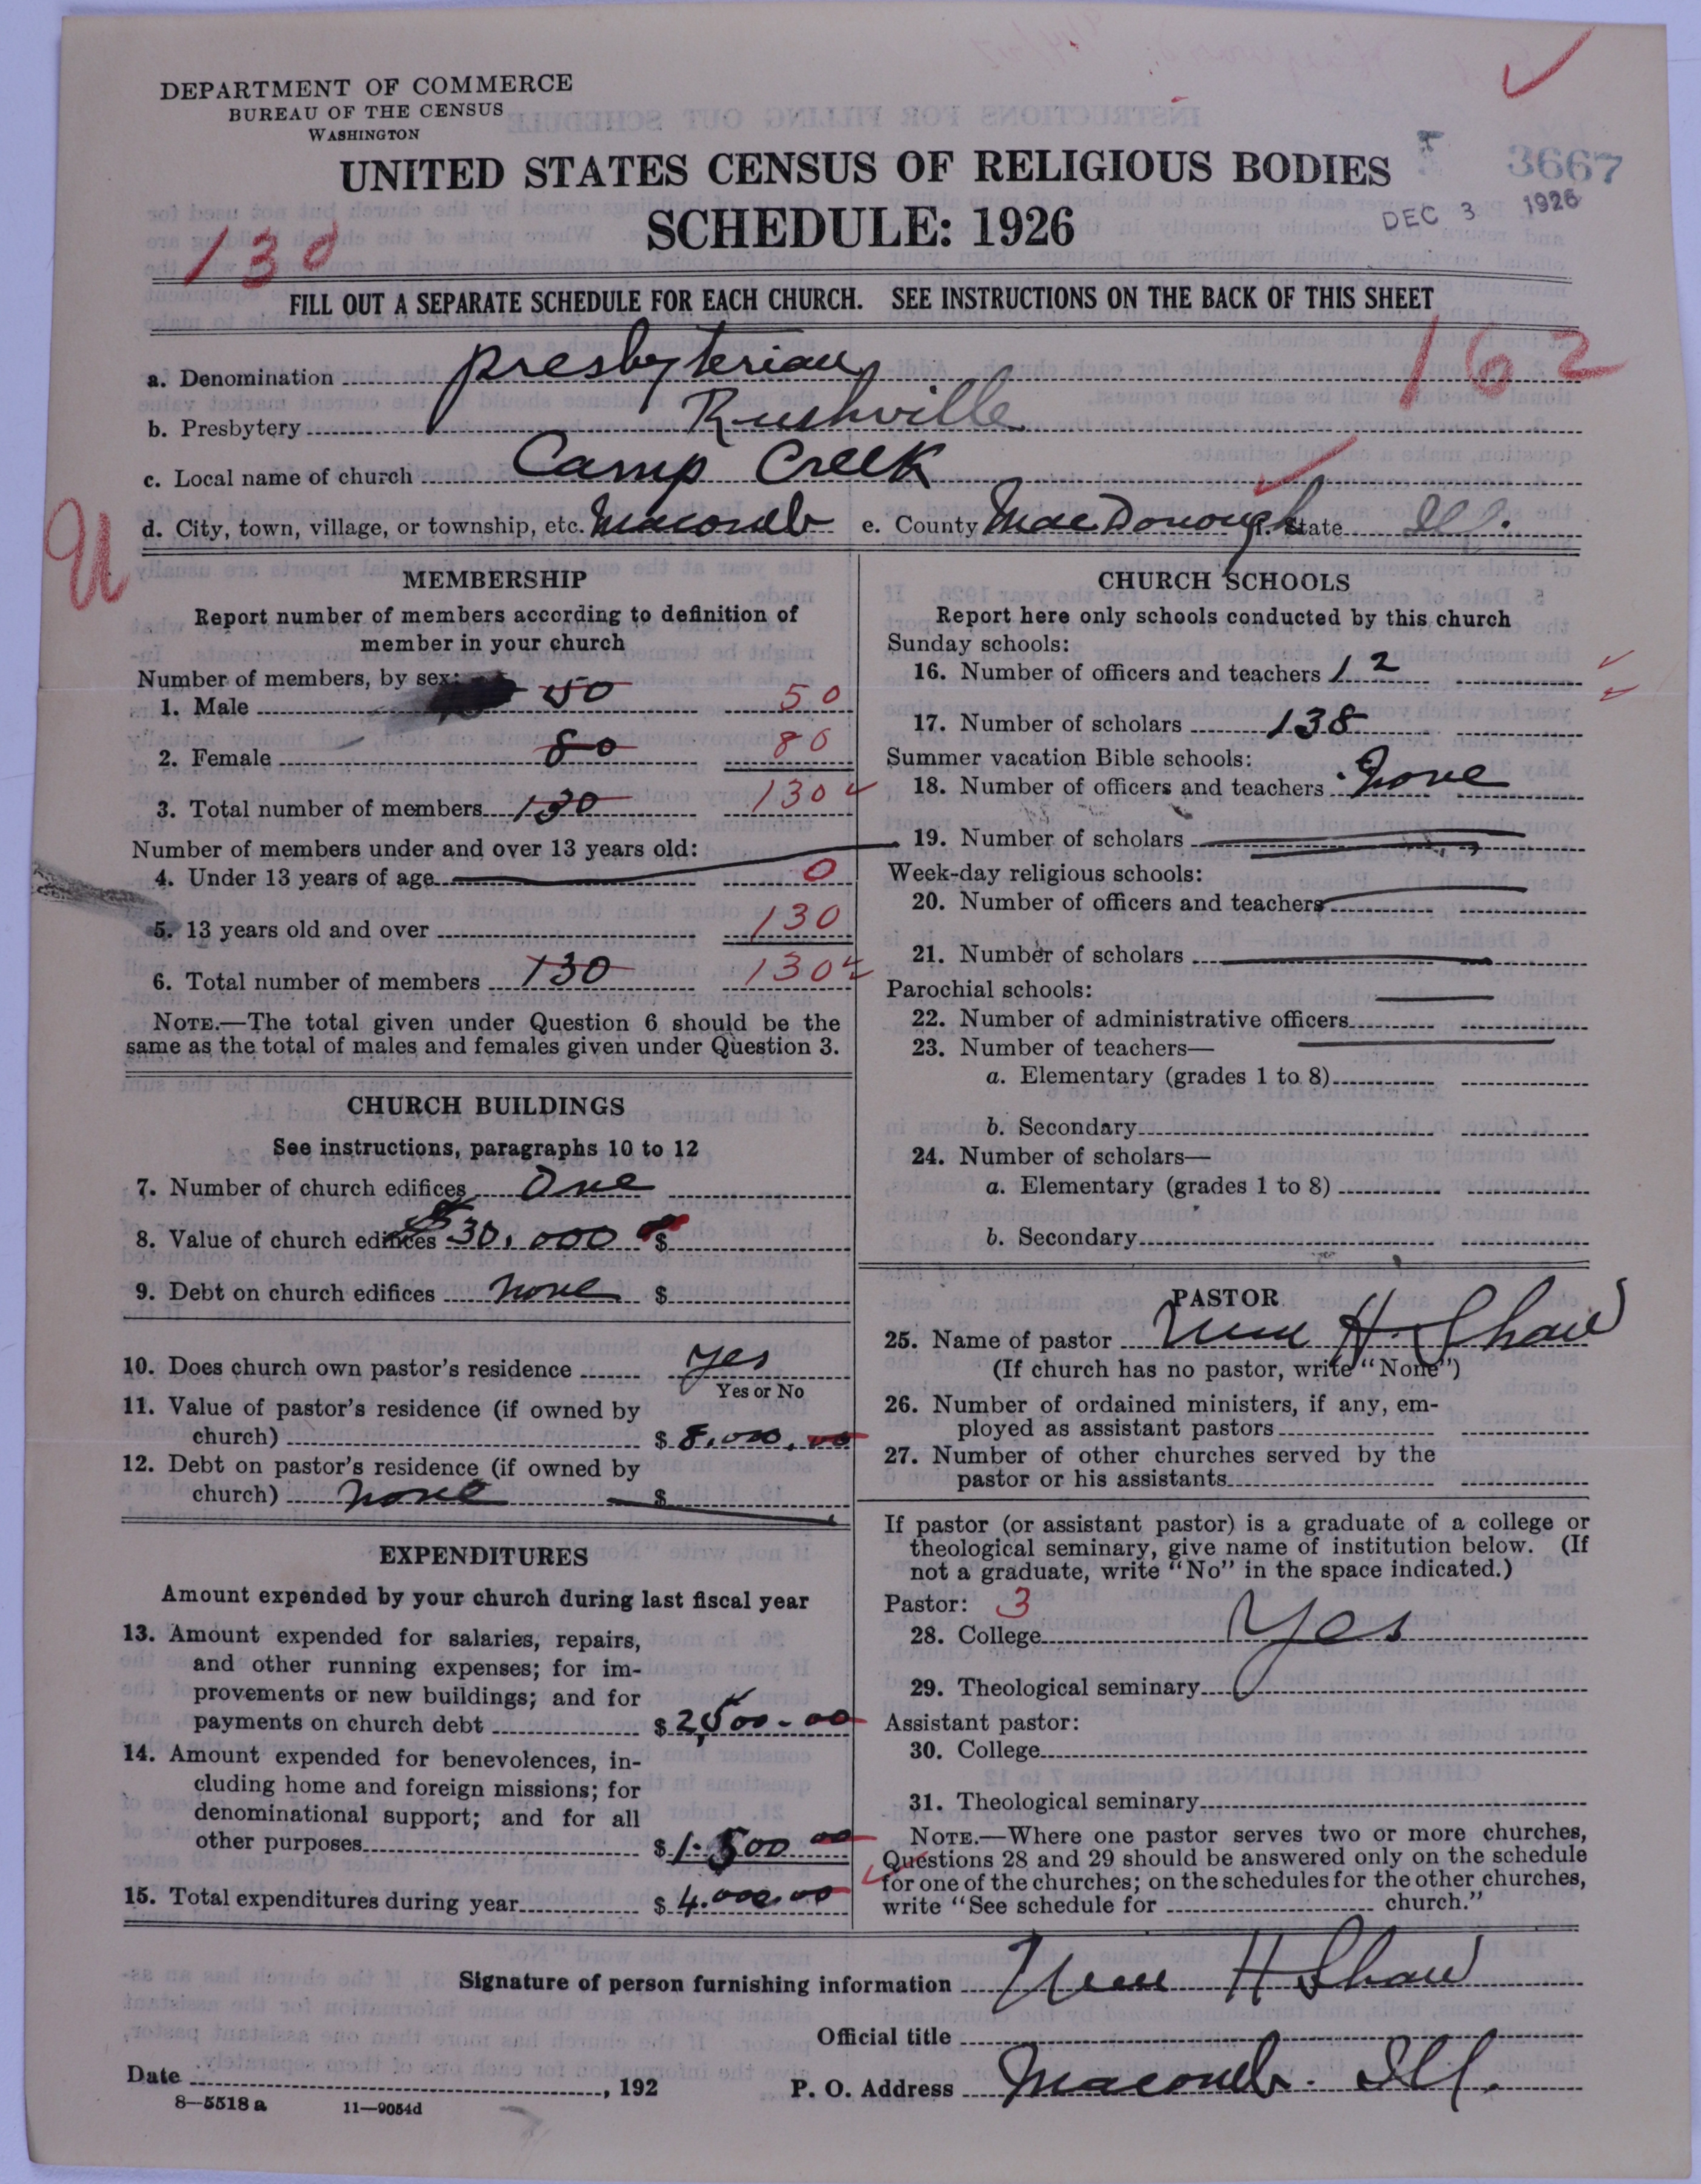 DEPARTMENT OF COMMERCE
BUREAU OF THE CENSUS
WASHINGTON
UNITED STATES CENSUS OF RELIGIOUS BODIES
SCHEDULE: 1926
3667
DEC 3 1926
130
FILL OUT A SEPARATE SCHEDULE FOR EACH CHURCH. SEE INSTRUCTIONS ON THE BACK OF THIS SHEET
162
a. Denomination Presbyterian
b. Presbytery Rushville
c. Local name of church Camp Creek
d. City, town, village, or township, etc. Macomb e. County MacDonough State Ill.
U
MEMBERSHIP
Report number of members according to definition of
member in your church
Number of members, by sex:
1. Male 50 50
2. Female 80 80
3. Total number of members 130 130
Number of members under and over 13 years old:
4. Under 13 years of age 0
5. 13 years old and over 130
6. Total number of members 130 130
NOTE.—The total given under Question 6 should be the
same as the total of males and females given under Question 3.
CHURCH BUILDINGS
See instructions, paragraphs 10 to 12
7. Number of church edifices One
8. Value of church edifices $30,000 $
9. Debt on church edifices none $
10. Does church own pastor's residence yes
Yes or No
11. Value of pastor's residence (if owned by
church) $ 8,000.00
12. Debt on pastor's residence (if owned by
church) none $
EXPENDITURES
Amount expended by your church during last fiscal year
13. Amount expended for salaries, repairs,
and other running expenses; for im-
provements or new buildings; and for
payments on church debt $ 2,500-00
14. Amount expended for benevolences, in-
cluding home and foreign missions; for
denominational support; and for all
other purposes $ 1.500 00
15. Total expenditures during year $ 4.000.00
CHURCH SCHOOLS
Report here only schools conducted by this church
Sunday schools:
16. Number of officers and teachers 12
17. Number of scholars 138
Summer vacation Bible schools:
18. Number of officers and teachers None
19. Number of scholars
Week-day religious schools:
20. Number of officers and teachers
21. Number of scholars
Parochial schools:
22. Number of administrative officers
23. Number of teachers—
a. Elementary (grades 1 to 8)
b. Secondary
24. Number of scholars—
a. Elementary (grades 1 to 8)
b. Secondary
PASTOR
25. Name of pastor H. Shaw
(If church has no pastor, write "None")
26. Number of ordained ministers, if any, em-
ployed as assistant pastors
27. Number of other churches served by the
pastor or his assistants
If pastor (or assistant pastor) is a graduate of a college or
theological seminary, give name of institution below. (If
not a graduate, write "No" in the space indicated.)
Pastor: 3
28. College Yes
29. Theological seminary
Assistant pastor:
30. College
31. Theological seminary
NOTE.—Where one pastor serves two or more churches,
Questions 28 and 29 should be answered only on the schedule
for one of the churches; on the schedules for the other churches,
write "See schedule for church."
Signature of person furnishing information H Shaw
Official title
Date , 192 P. O. Address Macomb. Ill.
8—5518 a 11—9054d